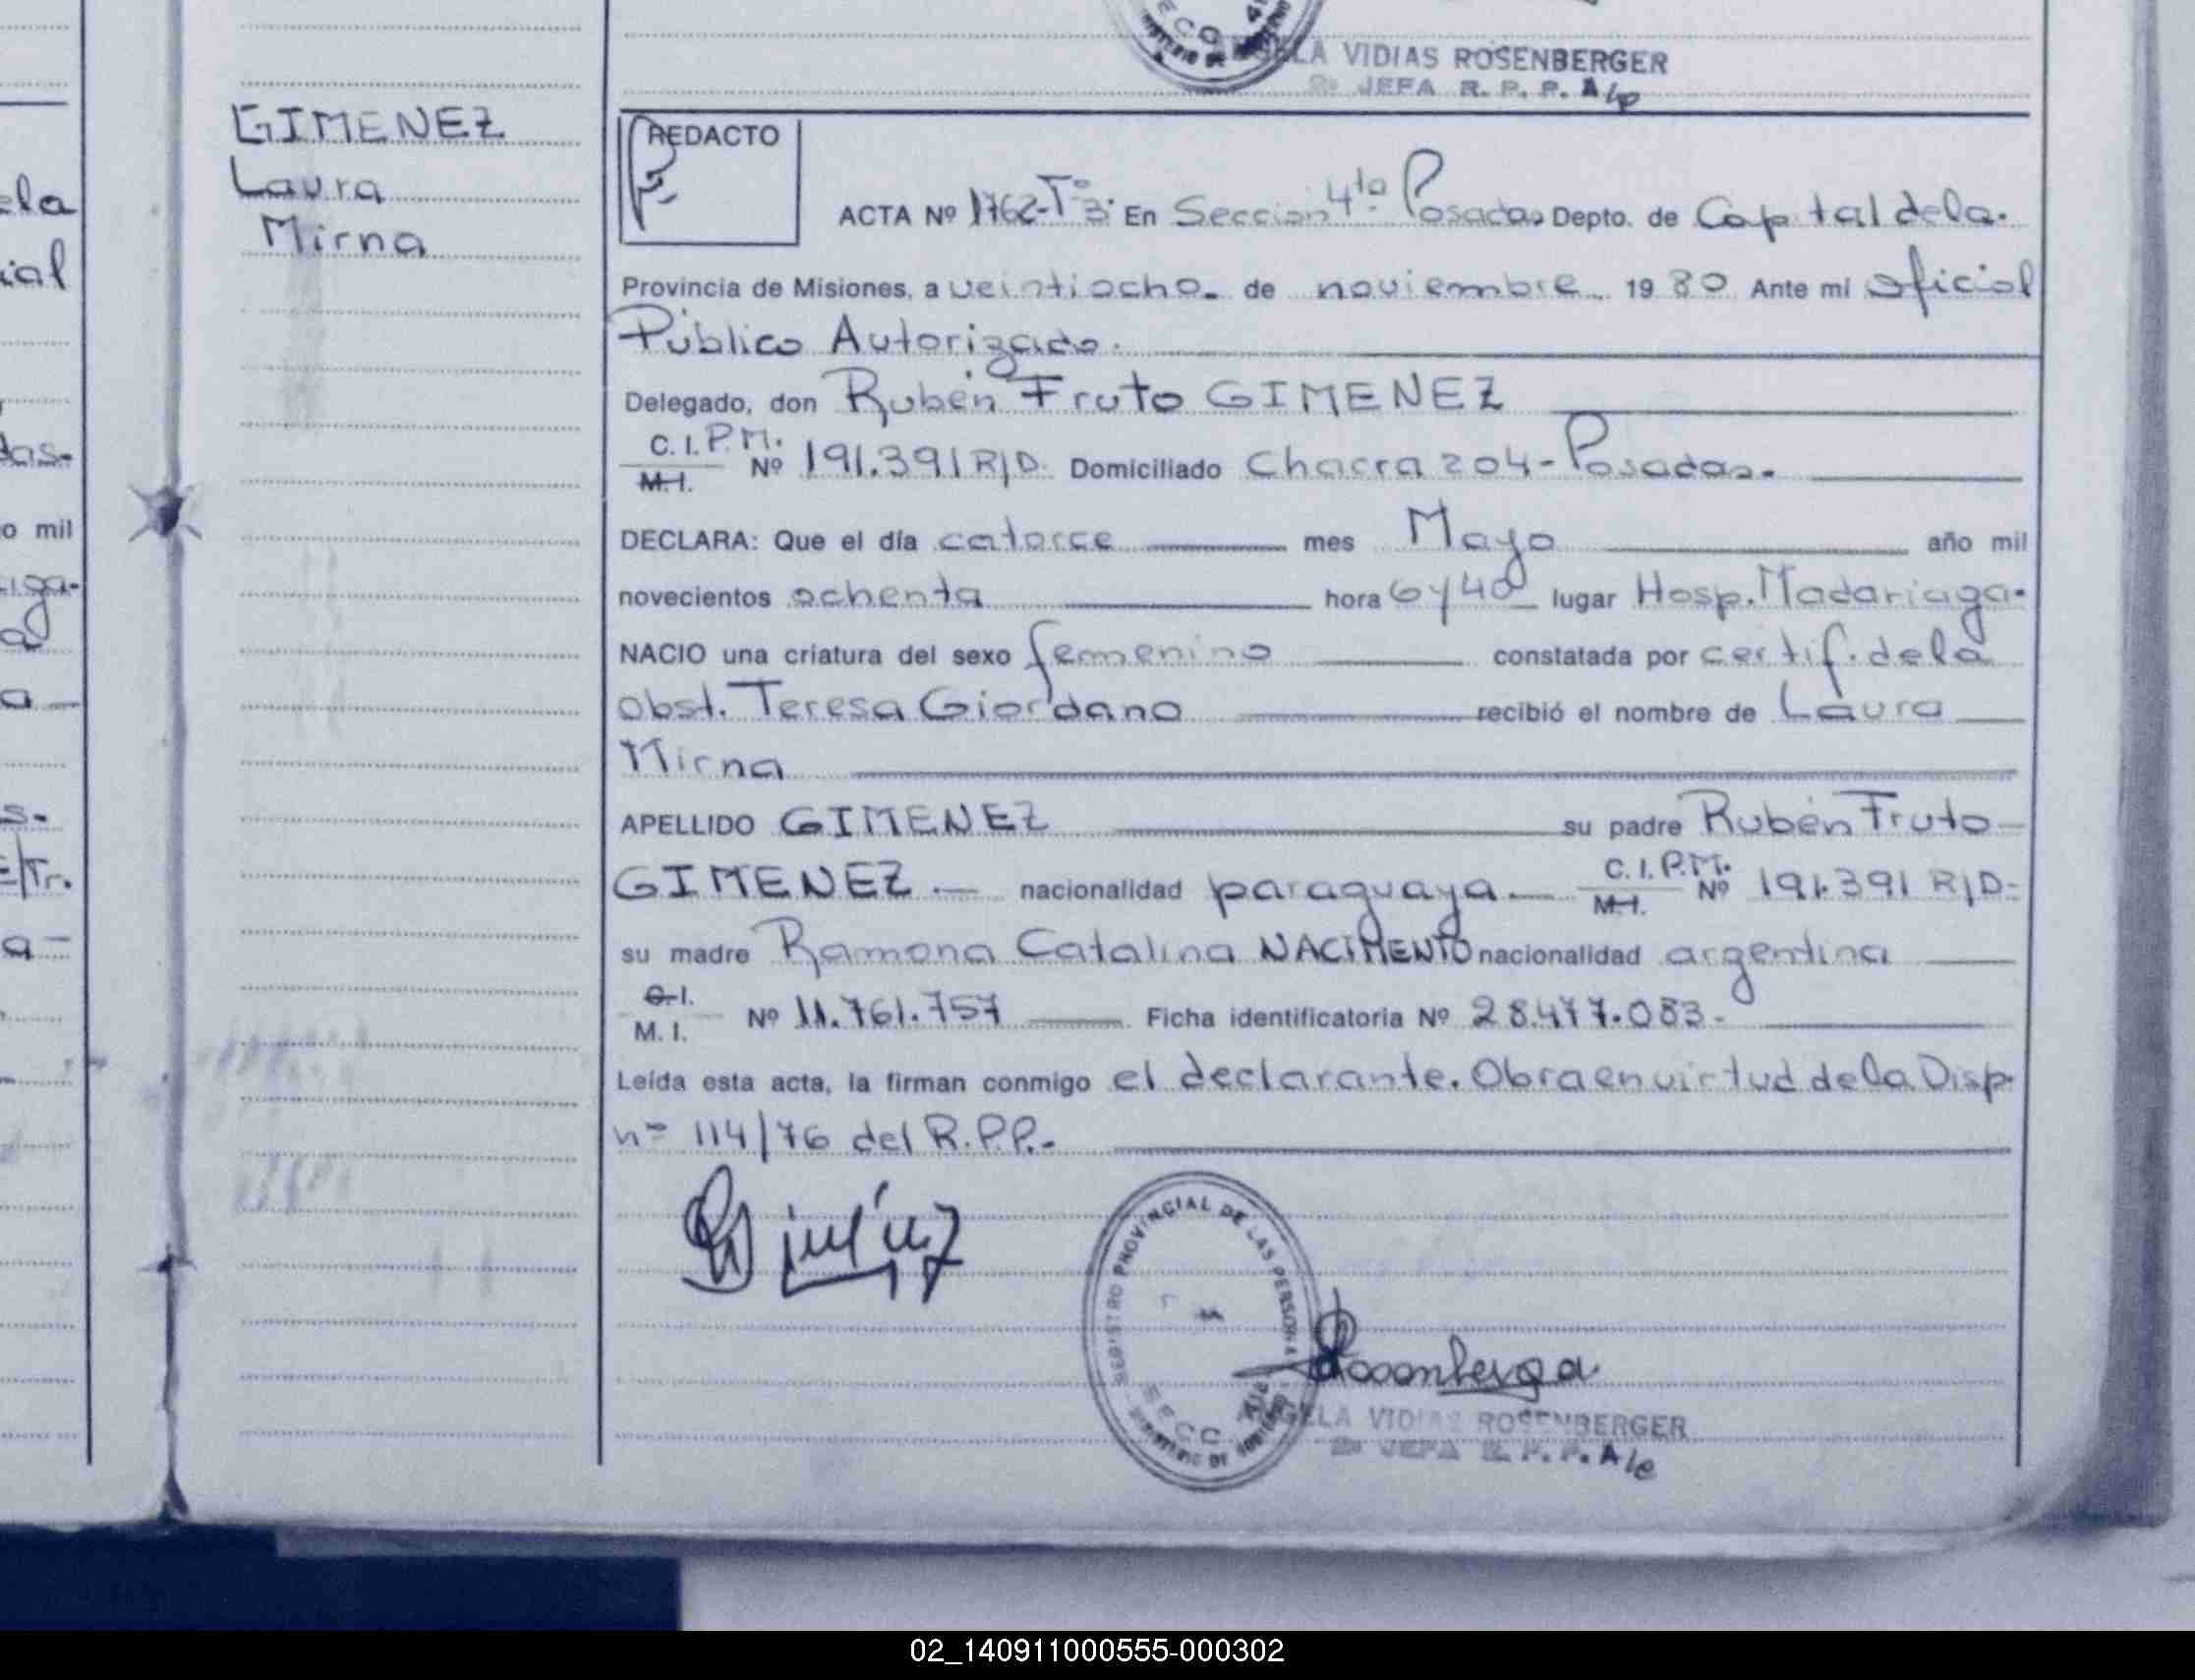 ELA VIDIAS ROSENBERGER
2ª JEFA R. P. P. A/c
GIMENEZ
Laura
Mirna
REDACTO
ACTA Nº 1762-Tº3. En Sección 4ta Posadas Depto. de Capital de la.
Provincia de Misiones, a veintiocho. de noviembre. 1980 Ante mí Oficial
Público Autorizado.
Delegado, don Rubén Fruto GIMENEZ
C. I. P.M.
M. I. Nº 191.391 R/D. Domiciliado Chacra 204-Posadas.
DECLARA: Que el día catorce mes Mayo año mil
novecientos ochenta hora 6 y 40 lugar Hosp. Madariaga.
NACIO una criatura del sexo femenino constatada por certif. de la
obst. Teresa Giordano recibió el nombre de Laura
Mirna
APELLIDO GIMENEZ su padre Rubén Fruto
GIMENEZ.- nacionalidad paraguaya.- C. I. P.M. M. I. Nº 191.391 R/D-
su madre Ramona Catalina NACIMENTO nacionalidad argentina
C. I.
M. I. Nº 11.761.757 Ficha identificatoria Nº 28.477.083.-
Leída esta acta, la firman conmigo el declarante. Obra en virtud de la Disp.
nº 114/76 del R.P.P.-
REGISTRO PROVINCIAL DE LAS PERSONAS
SECC
MINISTERIO DE GOBIERNO
Rosenberger
GELA VIDIAS ROSENBERGER
2ª JEFA R. P. P. A/c
ela
ial
das-
o mil
iga-
a
a
s-
E/Tr.
a-
02_140911000555-000302